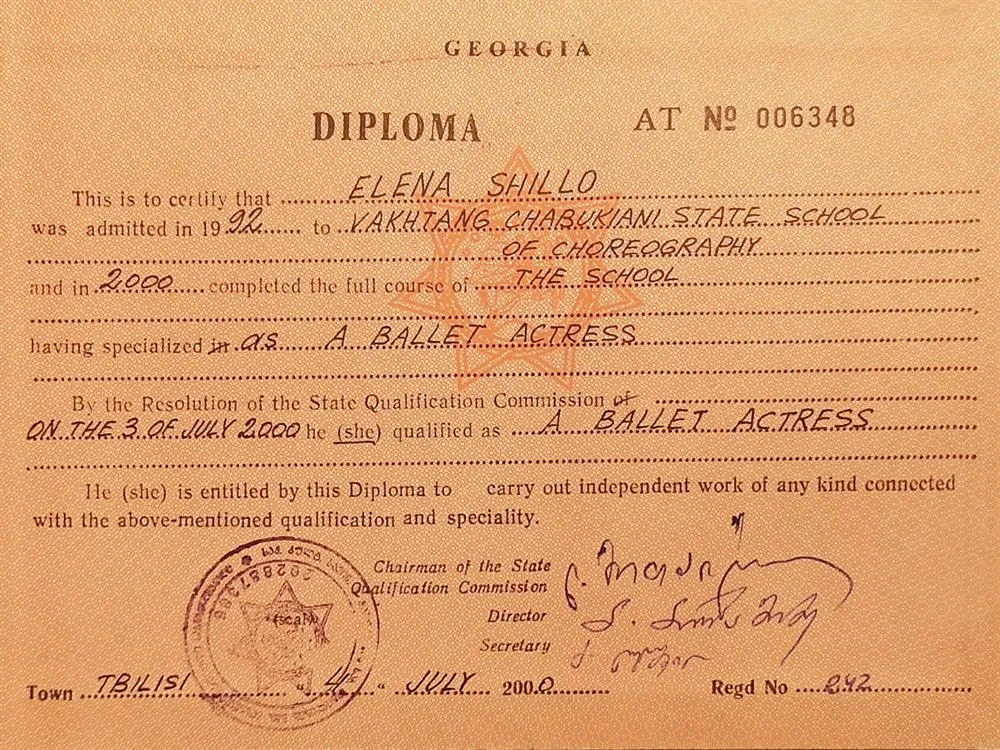 GEORGIA
DIPLOMA AT № 006348
This is to certify that ELENA SHILLO
was admitted in 1992 to VAKHTANG CHABUKIANI STATE SCHOOL
OF CHOREOGRAPHY
and in 2000 completed the full course of THE SCHOOL
having specialized in as A BALLET ACTRESS
By the Resolution of the State Qualification Commission of
ON THE 3 OF JULY 2000 he (she) qualified as A BALLET ACTRESS
He (she) is entitled by this Diploma to carry out independent work of any kind connected
with the above-mentioned qualification and speciality.
Chairman of the State
Qualification Commission
(seal)
Director
Secretary
Town TBILISI "4" JULY 2000 Regd No 242